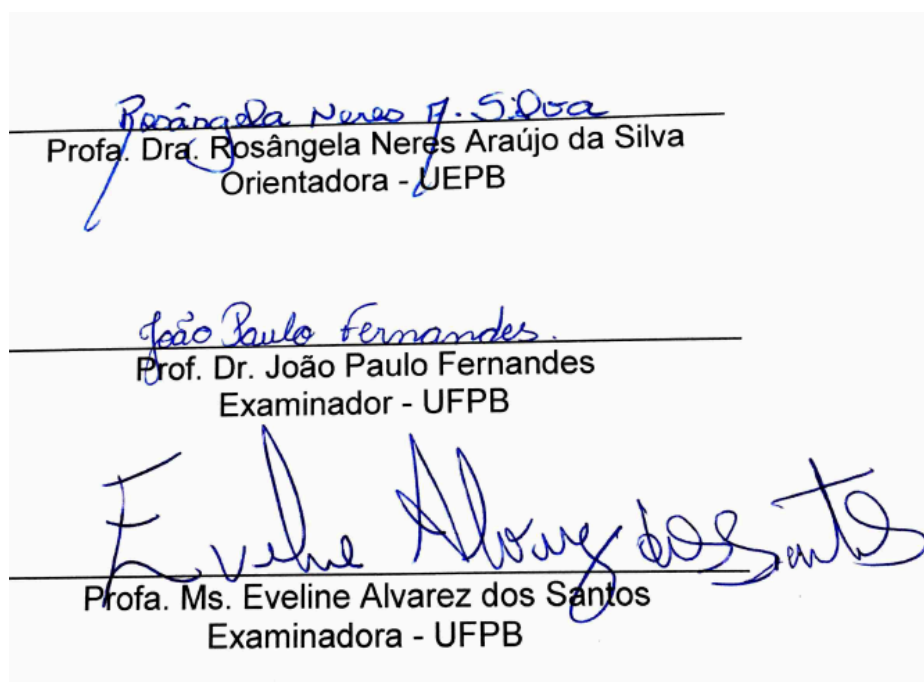 Rosângela Neres A. Silva
Profa. Dra. Rosângela Neres Araújo da Silva
Orientadora - UEPB
João Paulo Fernandes.
Prof. Dr. João Paulo Fernandes
Examinador - UFPB
Eveline Alvarez dos Santos
Profa. Ms. Eveline Alvarez dos Santos
Examinadora - UFPB